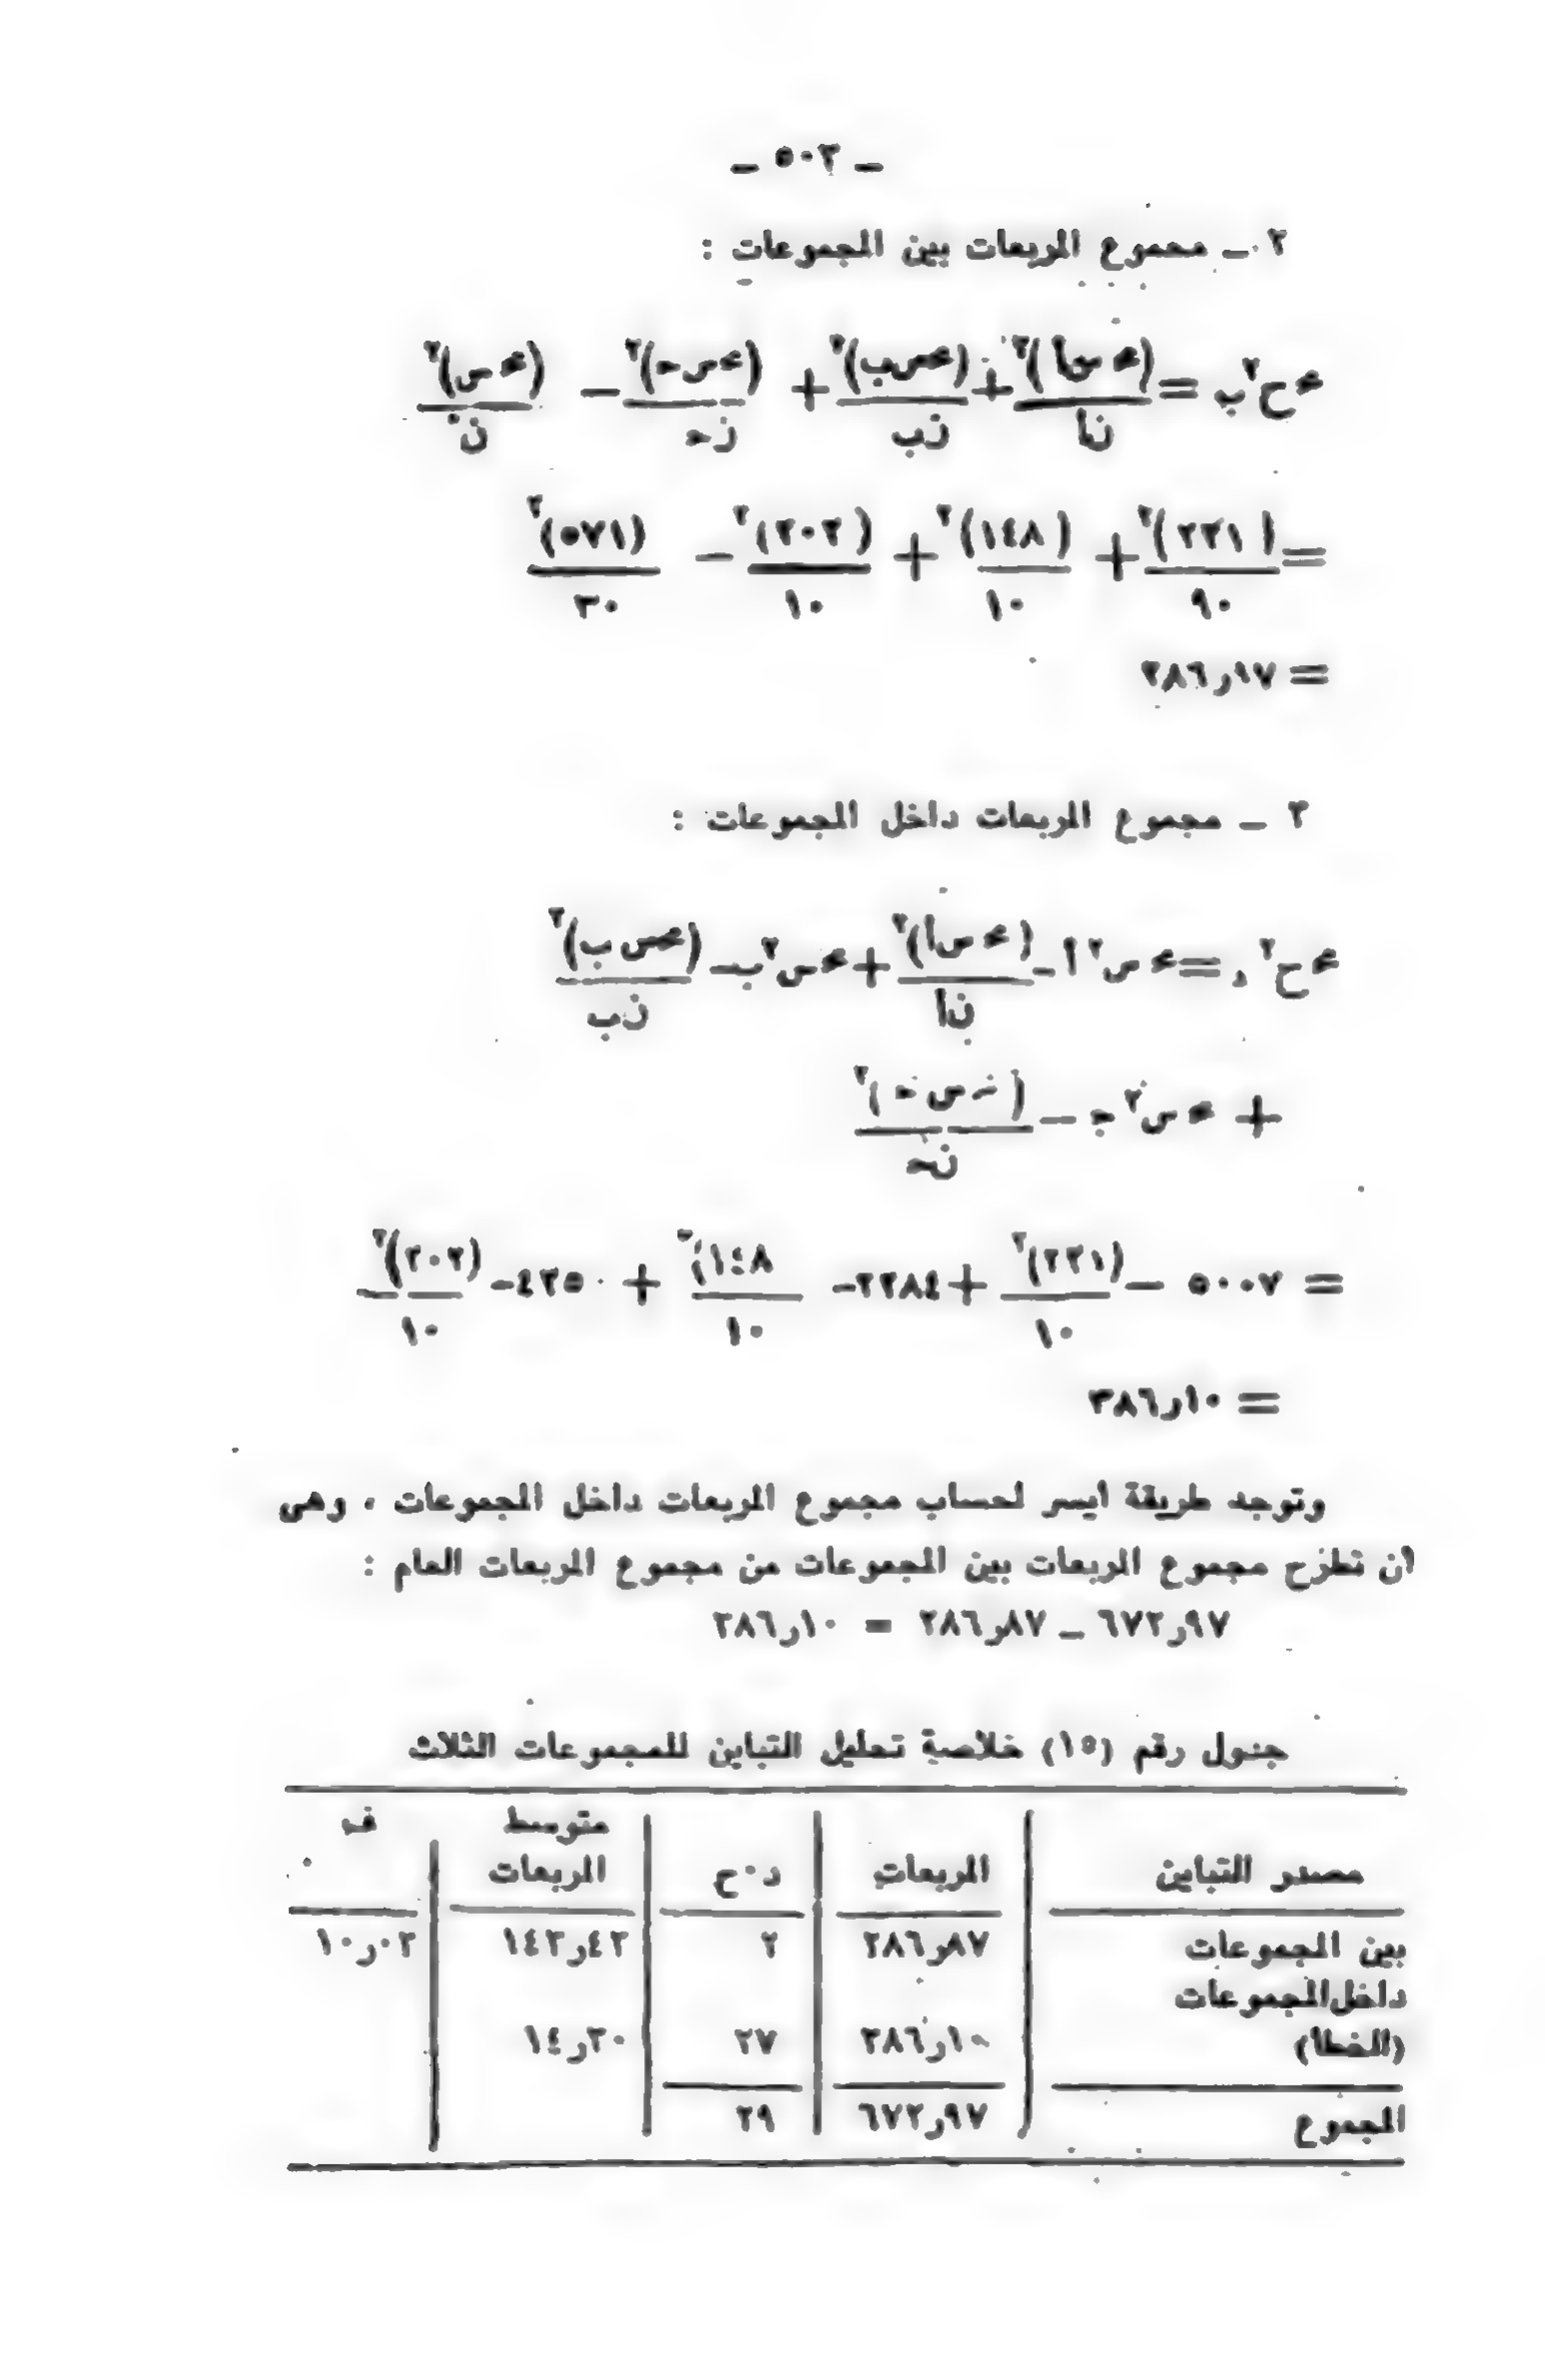 ـ ٥٠٣ ـ
٢ ـ مجموع المربعات بين المجموعات :
مح ح٢ب = (مح س أ)٢/ن أ + (مح س ب)٢/ن ب + (مح س ح)٢/ن ح − (مح س)٢/ن
= (٢٢١)٢/٩٠ + (١٤٨)٢/١٠ + (٢٠٢)٢/١٠ − (٥٧١)٢/٣٠
= ٢٨٦٫٩٧
٣ ـ مجموع المربعات داخل المجموعات :
مح ح٢د = مح س٢أ − (مح س أ)٢/ن أ + مح س٢ب − (مح س ب)٢/ن ب
+ مح س٢ج − (مح س ح)٢/ن ح
= ٥٠٠٧ − (٢٢١)٢/١٠ + ٢٢٨٤ − (١٤٨)٢/١٠ + ٤٢٥٠ − (٢٠٢)٢/١٠
= ٣٨٦٫١٠
وتوجد طريقة أيسر لحساب مجموع المربعات داخل المجموعات ، وهى
أن نطرح مجموع المربعات بين المجموعات من مجموع المربعات العام :
٦٧٢٫٩٧ ـ ٢٨٦٫٨٧ = ٣٨٦٫١٠
جدول رقم (١٥) خلاصة تحليل التباين للمجموعات الثلاث
مصدر التباين المربعات د٠ح متوسط المربعات ف
بين المجموعات ٢٨٦٫٨٧ ٢ ١٤٣٫٤٣ ١٠٫٠٣
داخل المجموعات
(الخطأ) ٣٨٦٫١٠ ٢٧ ١٤٫٣٠
المجموع ٦٧٢٫٩٧ ٢٩